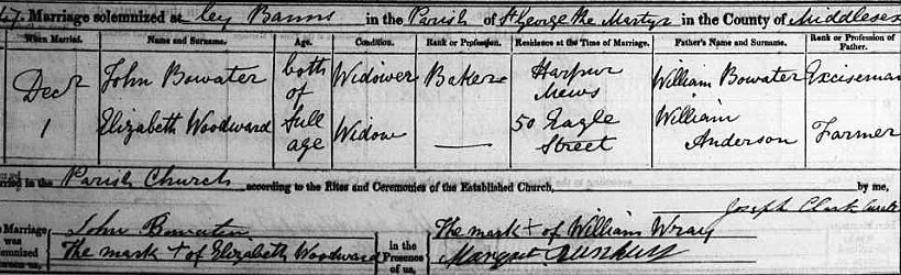 47. Marriage solemnized at by Banns in the Parish of St George the Martyr in the County of Middlesex
When Married. Name and Surname. Age. Condition. Rank or Profession. Residence at the Time of Marriage. Father's Name and Surname. Rank or Profession of Father.
Decr 1 John Bowater both of full age Widower Baker Harpur Mews William Bowater Exciseman
Elizabeth Woodward Widow 50 Eagle Street William Anderson Farmer
rried in the Parish Church according to the Rites and Ceremonies of the Established Church, by me,
Joseph Clark Curate
Marriage was lemnized John Bowater in the Presence of us, The mark + of William Wray
The mark + of Elizabeth Woodward Margret